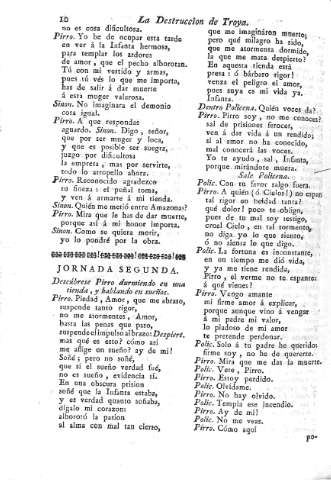 10 La Destruccion de Troya.
no es cosa dificultosa.
Pirro. Yo he de ocupar esta tarde
en ver á la Infanta hermosa,
para templar los ardores
de amor, que el pecho alborotan.
Tú con mi vestido y armas,
pues tú vés lo que me importa,
has de salir á dar muerte
á esta muger valerosa.
Sinon. No imaginara el demonio
cosa igual.
Pirro. A que respondas
aguardo. Sinon. Digo, señor,
que por ser muger y loca,
y que es posible ser suegra,
juzgo por dificultosa
la empresa, mas por servirte,
todo lo atropello ahora.
Pirro. Reconocido agradezco
tu fineza: el puñal toma,
y ven á armarte á mi tienda.
Sinon. Quién me metió entre Amazonas?
Pirro. Mira que le has de dar muerte,
porque así á mi honor importa.
Sinon. Como se quiera morir,
yo lo pondré por la obra.
JORNADA SEGUNDA.
Descúbrese Pirro durmiendo en una
tienda, y hablando en sueños.
Pirro. Piedad, Amor, que me abraso,
suspende tanto rigor,
no me atormentes, Amor,
basta las penas que paso,
suspende el impulso al brazo: Despiert.
mas qué es esto? cómo así
me aflige un sueño? ay de mí!
Soñé; pero no soñé,
que si el sueño verdad fué,
no es sueño, evidencia sí.
En una obscura prision
soñé que la Infanta estaba,
y es verdad quanto soñaba,
dígalo mi corazon:
alborotó la pation
al alma con mal tan cierto,
que me imaginaron muerto;
pero qué milagro ha sido,
que me atormenda dormido,
la que me mata despierto?
En aquesta tienda está
presa: ó bárbaro rigor!
venza el peligro el amor,
pues suya es mi vida ya.
Infanta.
Dentro Policena. Quién voces da?
Pirro. Pirro soy, no me conoces?
sal de prisiones feroces,
ven á dar vida á un rendido;
si al amor no ha conocido,
mal conocerá las voces.
Yo te ayudo, sal, Infanta,
porque mirándote muera.
Sale Policena.
Polic. Con tu favor salgo fuera.
Pirro. A quién (ó Cielos!) no espan
tal rigor en beldad tanta?
qué dolor! poco te obligo,
pues de tu mal soy testigo,
cruel Cielo, en tal tormento,
no diga yo lo que siento,
ó no sienta lo que digo.
Polic. La fortuna es inconstante,
en un tiempo me dió vida,
y ya me tiene rendida,
Pirro, el verme no te espante:
á qué vienes?
Pirro. Vengo amante
mi firme amor á explicar,
porque aunque vino á vengar
á mi padre mi valor,
lo piadoso de mi amor
te pretende perdonar.
Polic. Solo á tu padre he querido:
firme soy, no he de quererte.
Pirro. Mira que me das la muerte.
Polic. Vete, Pirro.
Pirro. Estoy perdido.
Polic. Olvídame.
Pirro. No hay olvido.
Polic. Templa ese incendio.
Pirro. Ay de mí!
Polic. No me veas.
Pirro. Cómo aquí
po-